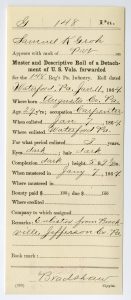 G | 148 | Pa.
Samuel K Groh
Appears with rank of Pvt on
Muster and Descriptive Roll of a Detachment of U. S. Vols. forwarded
for the 148 Reg't Pa. Infantry. Roll dated
Waterford, Pa, Jan 11, 1864
Where born Pa
Age y'rs; occupation Carpenter
When enlisted Jan, 1864
Where enlisted Waterford Pa
For what period enlisted 3 years.
Eyes dark; hair dark
Complexion dark; height 5 ft. in.
When mustered in Jany 7, 1864
Where mustered in
Bounty paid $ 100; due $ 100
Where credited
Company to which assigned
Remarks: Enlisted from Brookville Jefferson Co Pa
Book mark:
Bradshaw
Copyist.